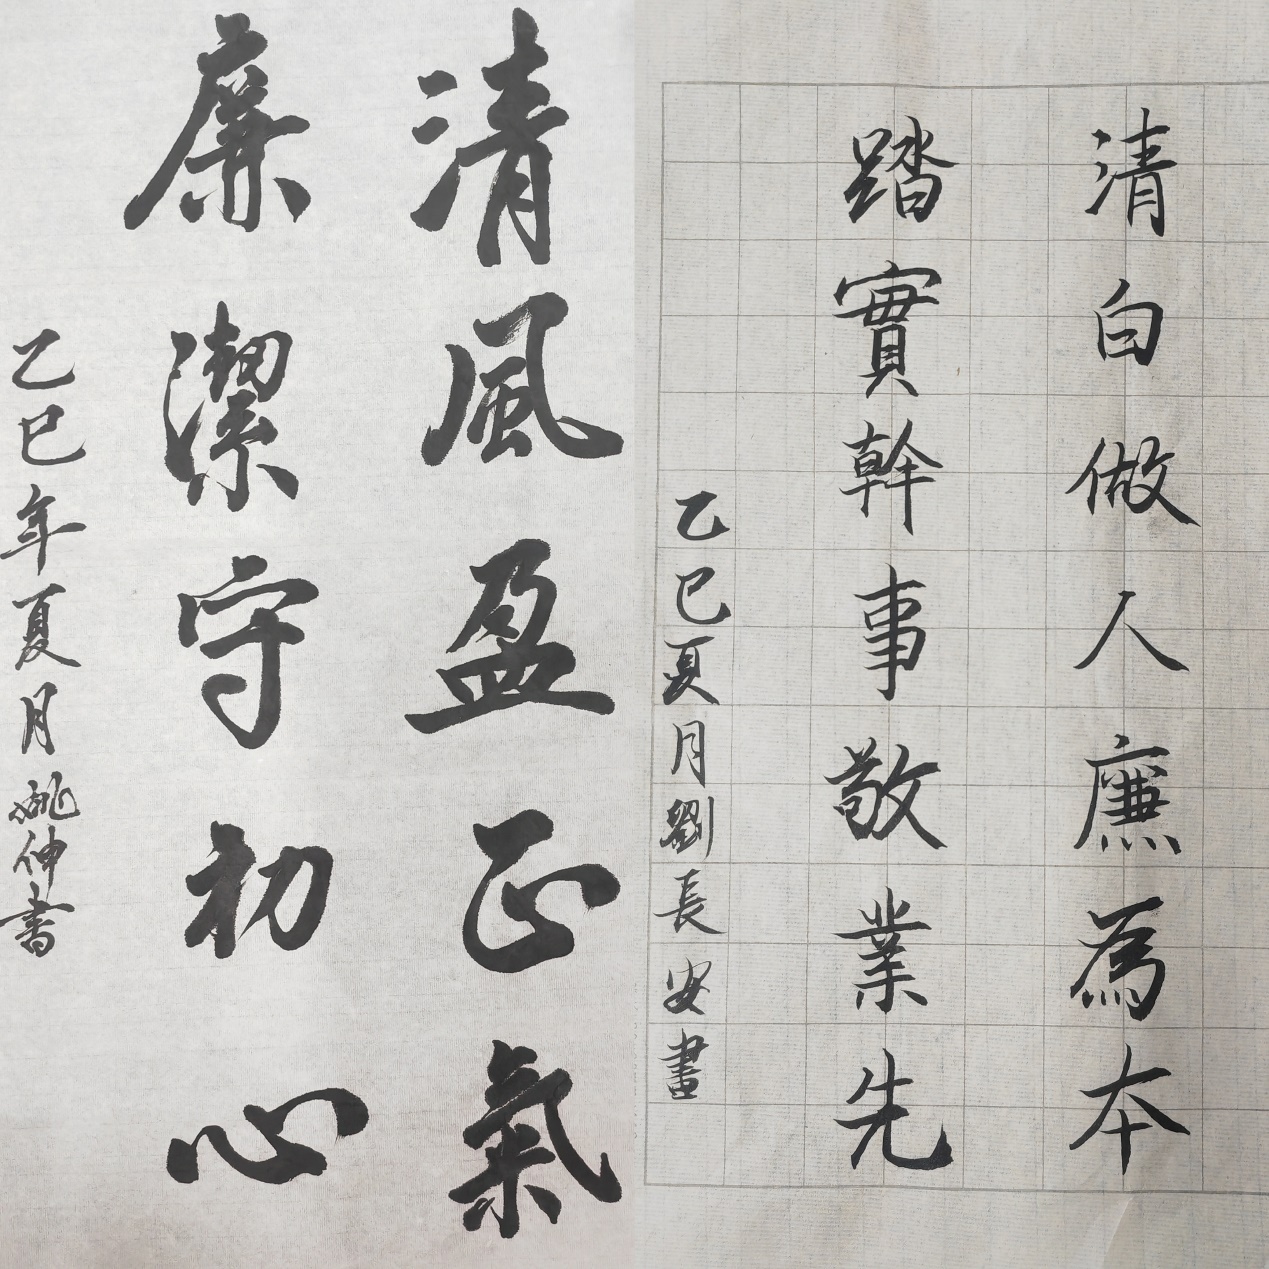 清風盈正氣
廉潔守初心
乙巳年夏月姚仲書
清白做人廉為本
踏實幹事敬業先
乙巳夏月劉長安書